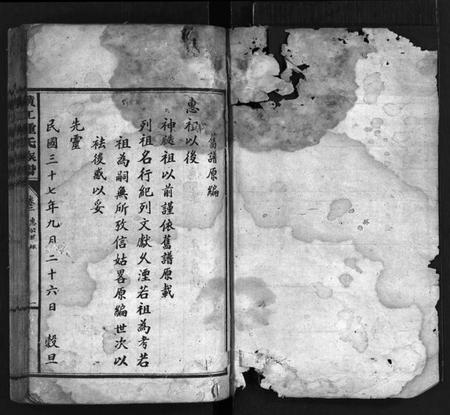 舊譜原編
惠祖以後
神從祖以前謹依舊譜原載
列祖名行紀列文獻久湮若祖為考若
祖為嗣無所攷信姑畧原編世次以
祛後惑以妥
先靈
民國三十七年九月二十六日 穀旦
江 氏族譜
卷 惠公世錄